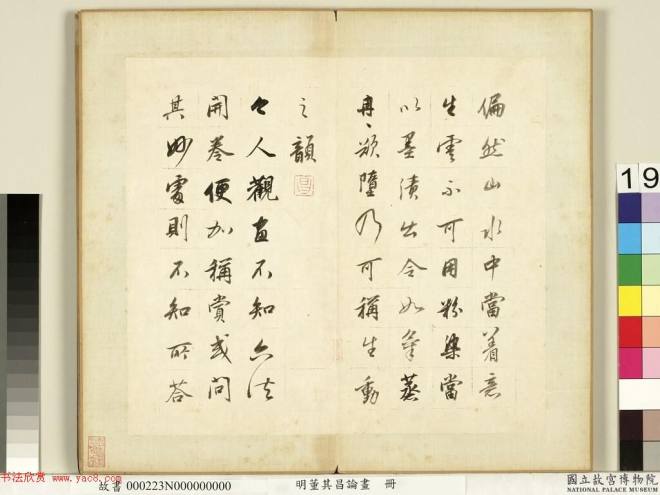 偏然山水中當着意
生雲不可用粉染當
以墨漬出令如氣蒸
冉、欲墮乃可稱生動
之韻
今人觀畫不知六法
開卷便加稱賞或問
其妙處則不知所答
19
书法欣赏 www.yac8.com
故書 000223N000000000
明董其昌論畫 冊
國立故宮博物院
NATIONAL PALACE MUSEUM